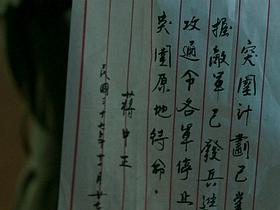 突圍計劃已掌
握敵軍已發兵進
攻通令各單停止
突圍原地待命。
蔣中正
民國三十七年十二月廿七